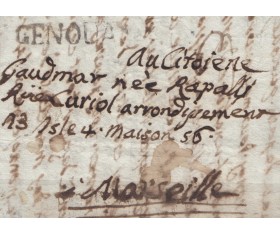 GENOVA
Au Citojene
Gaudmar nèe Rapalli
Rüe Curiol arrondisement
13 Isle 4. Maison 56.
à Marseille